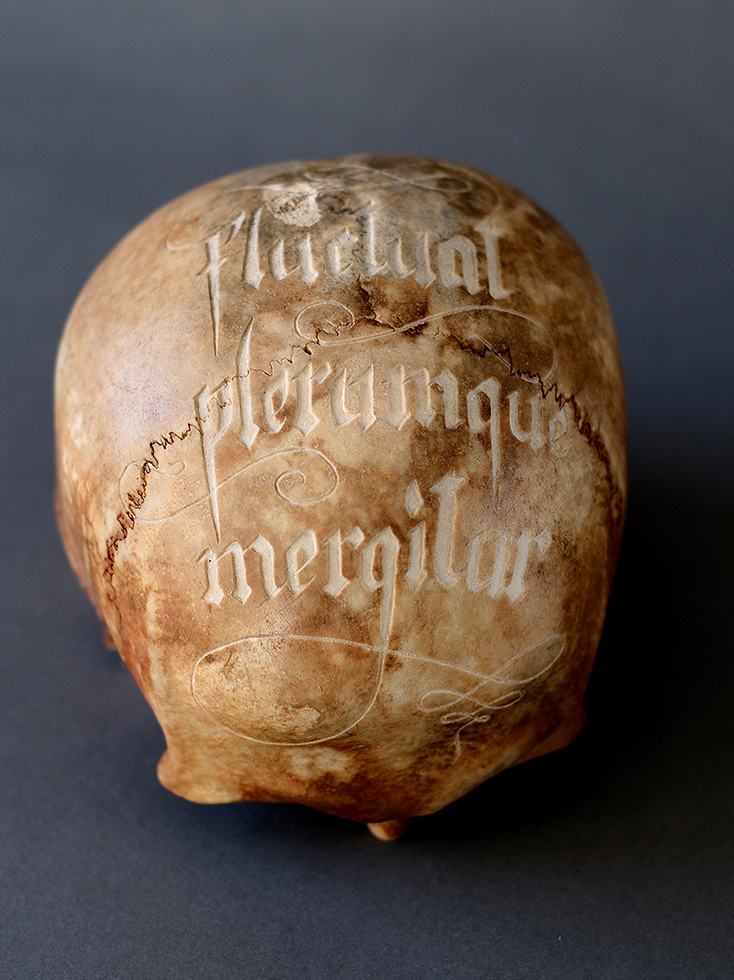 Fluctuat
plerumque
mergitur